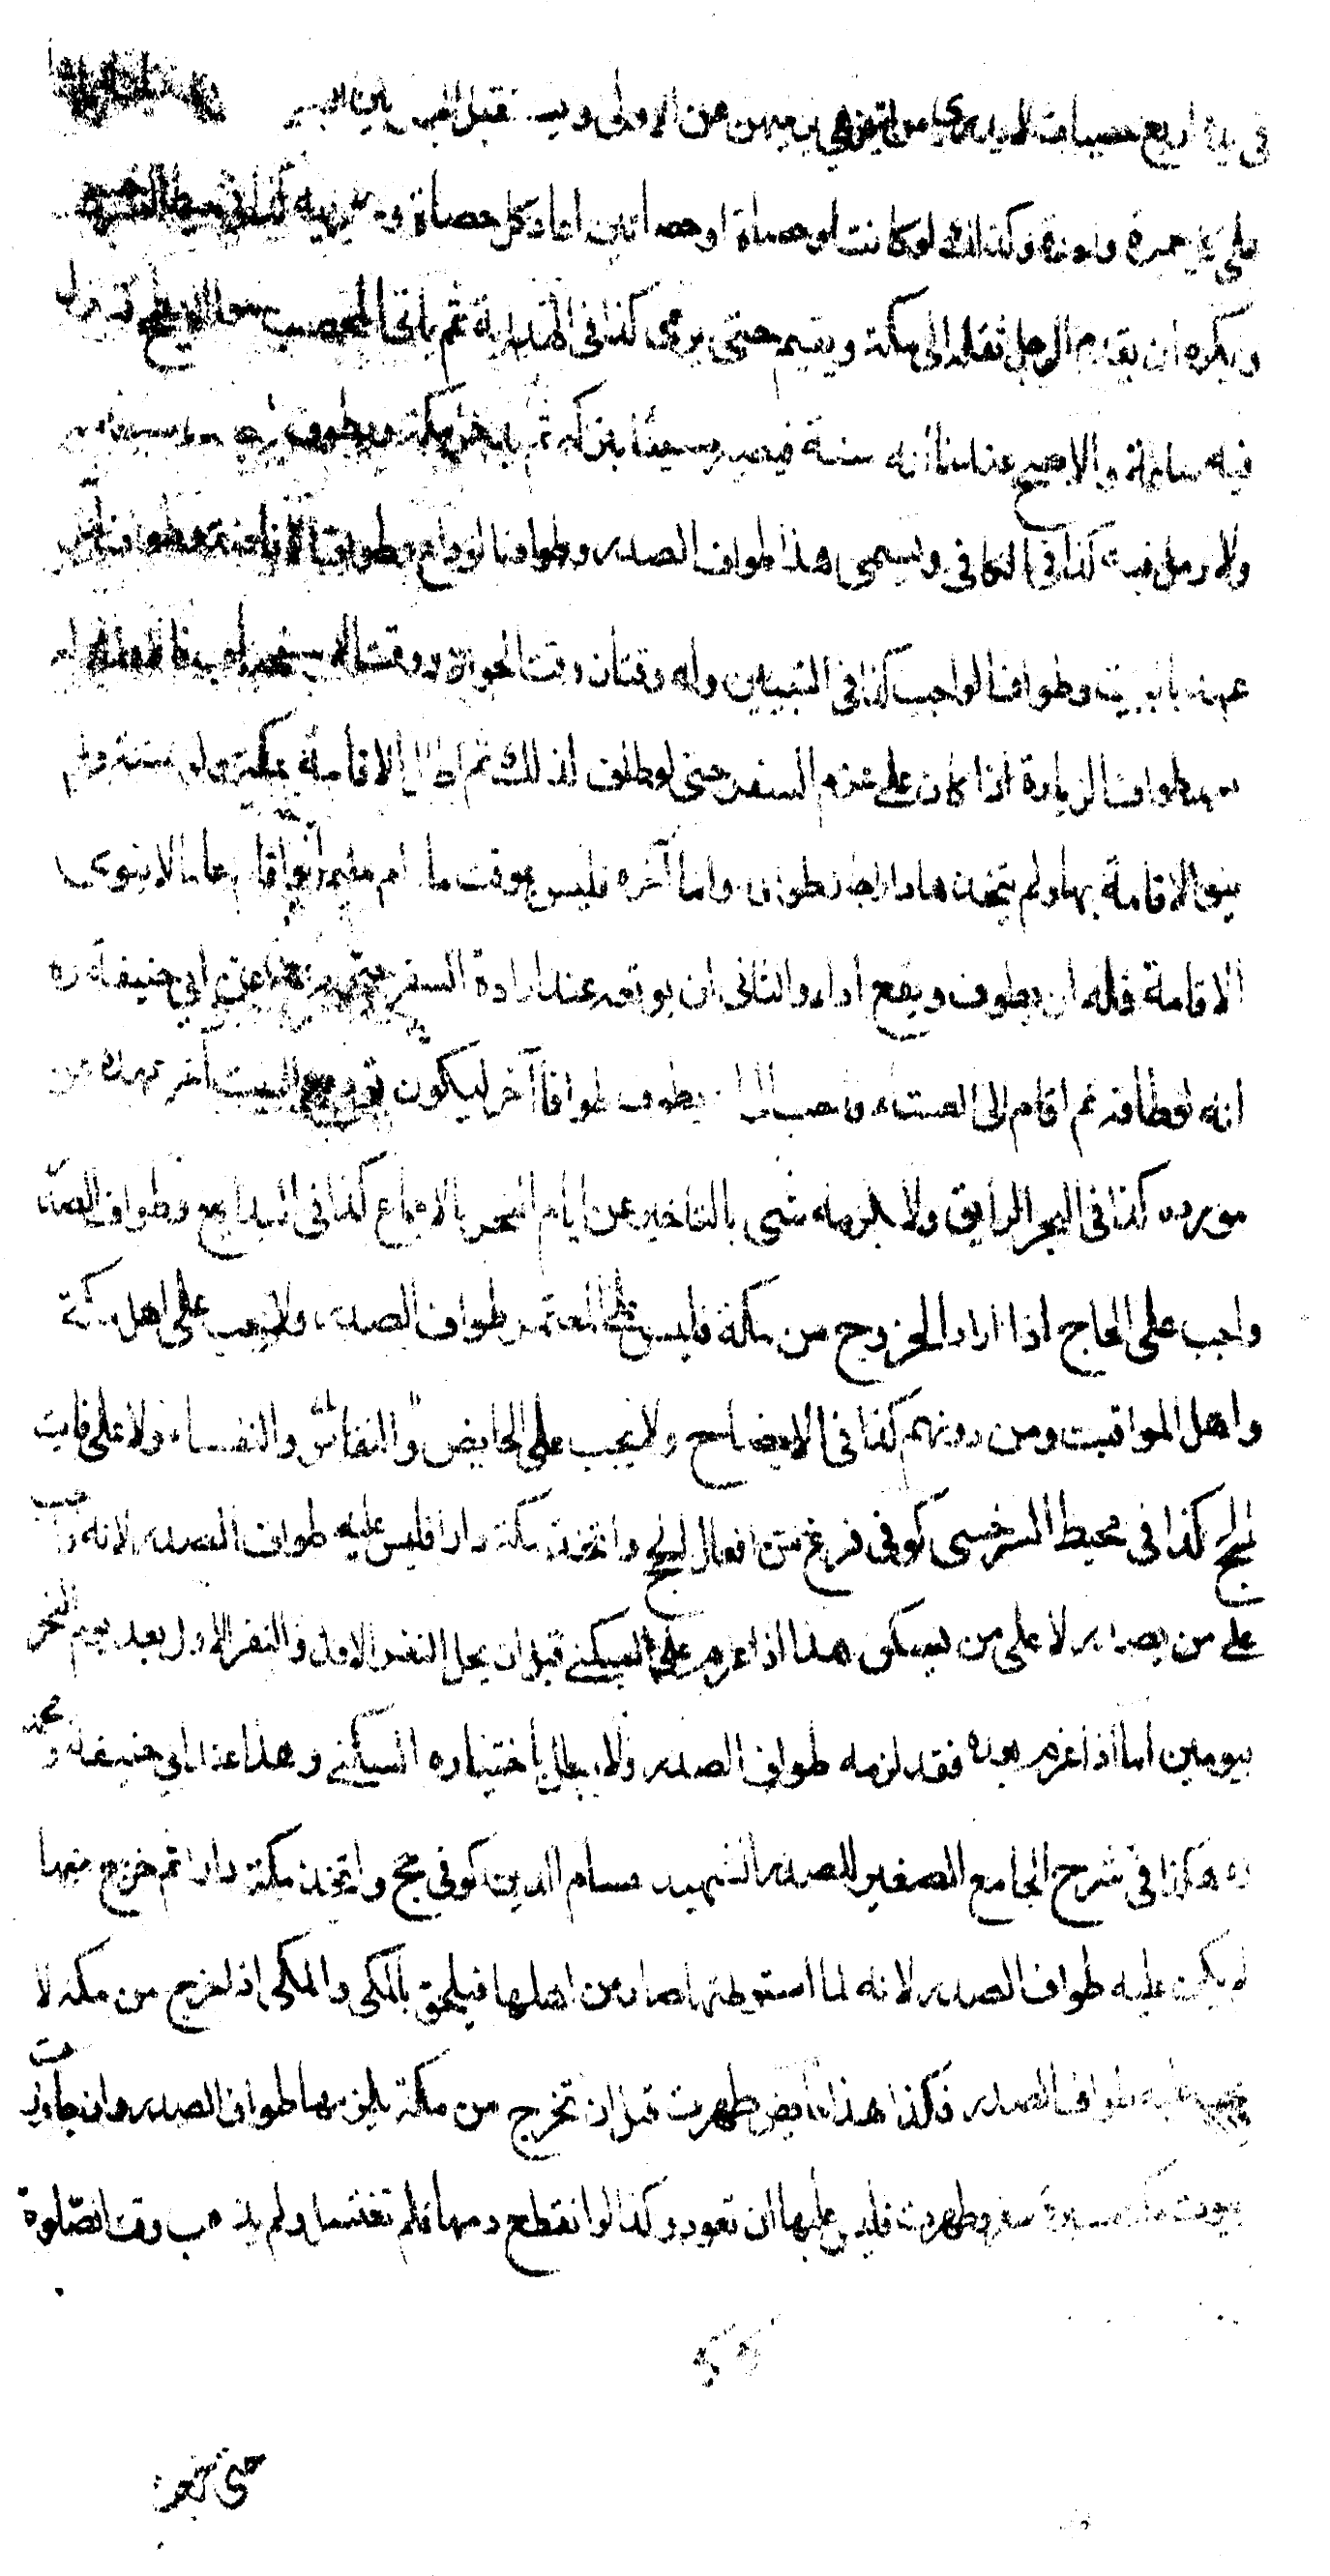 في يده اربع حصيات لا يدري من ايتهن هي يرميهن من الاولى ويستقبل الباقيتين
على كل جمرة واحدة وكذلك لو كانت حصاة او حصاتين اعاد كل حصاة كذا في محيط السرخسي
ويكره ان يقدم الرجل ثقله الى مكة ويقيم حتى يرمى كذا في الهداية ثم ياتي المحصب الابطح فينزل
فيه ساعة والاصح عندنا انه سنة فيصير مسيئا بتركه ثم يدخل مكة ويطوف
ولا رمل فيه كذا في الكافي ويسمى هذا طواف الصدر وطواف الوداع وطواف الافاضة وطواف آخر
عهد بالبيت وطواف الواجب كذا في التبيين وله وقتان وقت الجواز ووقت الاستحباب فالاول
بعد طواف الزيارة اذا كان على عزم السفر حتى لو طاف لذلك ثم اطال الاقامة بمكة ولو سنة ولم
ينو الاقامة بها ولم يتخذها دارا جاز طوافه واما آخره فليس بموقت ما دام مقيما لو اقام عاما لا ينوى
الاقامة فله ان يطوف ويقع اداء والثانى ان يوقعه عند ارادة السفر حتى روي عن ابي حنيفة ره
انه لو طاف ثم اقام الى العشاء فاحب الى ان يطوف طوافا آخر ليكون توديع البيت آخر عهده عن
مورده كذا في البحر الرايق ولا يلزمه شيى بالتاخير عن ايام النحر بالاجماع كذا في البدايع وطواف الصدر
واجب على الحاج اذا اراد الخروج من مكة فليس على المعتمر طواف الصدر ولا يجب على اهل مكة
واهل المواقيت ومن دونهم كذا في الايضاح ولا يجب على الحايض والنفاس والنفساء ولا على فايت
الحج كذا في محيط السرخسى كوفى فرغ من افعال الحج واتخذ مكة دارا فليس عليه طواف الصدر لانه واجب
على من يصدر لا على من يسكن هذا اذا عزم على السكنى قبل ان يحل النفر الاول والنفر الاول بعد يوم النحر
بيومين اما اذا عزم بعده فقد لزمه طواف الصدر ولا يبطل باختياره السكنى وهذا عند ابي حنيفة ومحمد
ره هكذا في شرح الجامع الصغير للصدر الشهيد حسام الدين كوفى حج واتخذ مكة دارا ثم خرج منها
لم يكن عليه طواف الصدر لانه لما استوطنها صار من اهلها فيلحق بالمكى والمكى اذا خرج من مكة لا
يجب عليه طواف الصدر فكذا هذا حايض طهرت قبل ان تخرج من مكة يلزمها طواف الصدر وان جاوزت
بيوت مكة مسيرة سفر وطهرت فليس عليها ان تعود وكذا لو انقطع دمها فلم تغتسل ولم يذهب وقت الصلوة
حتى خرجت